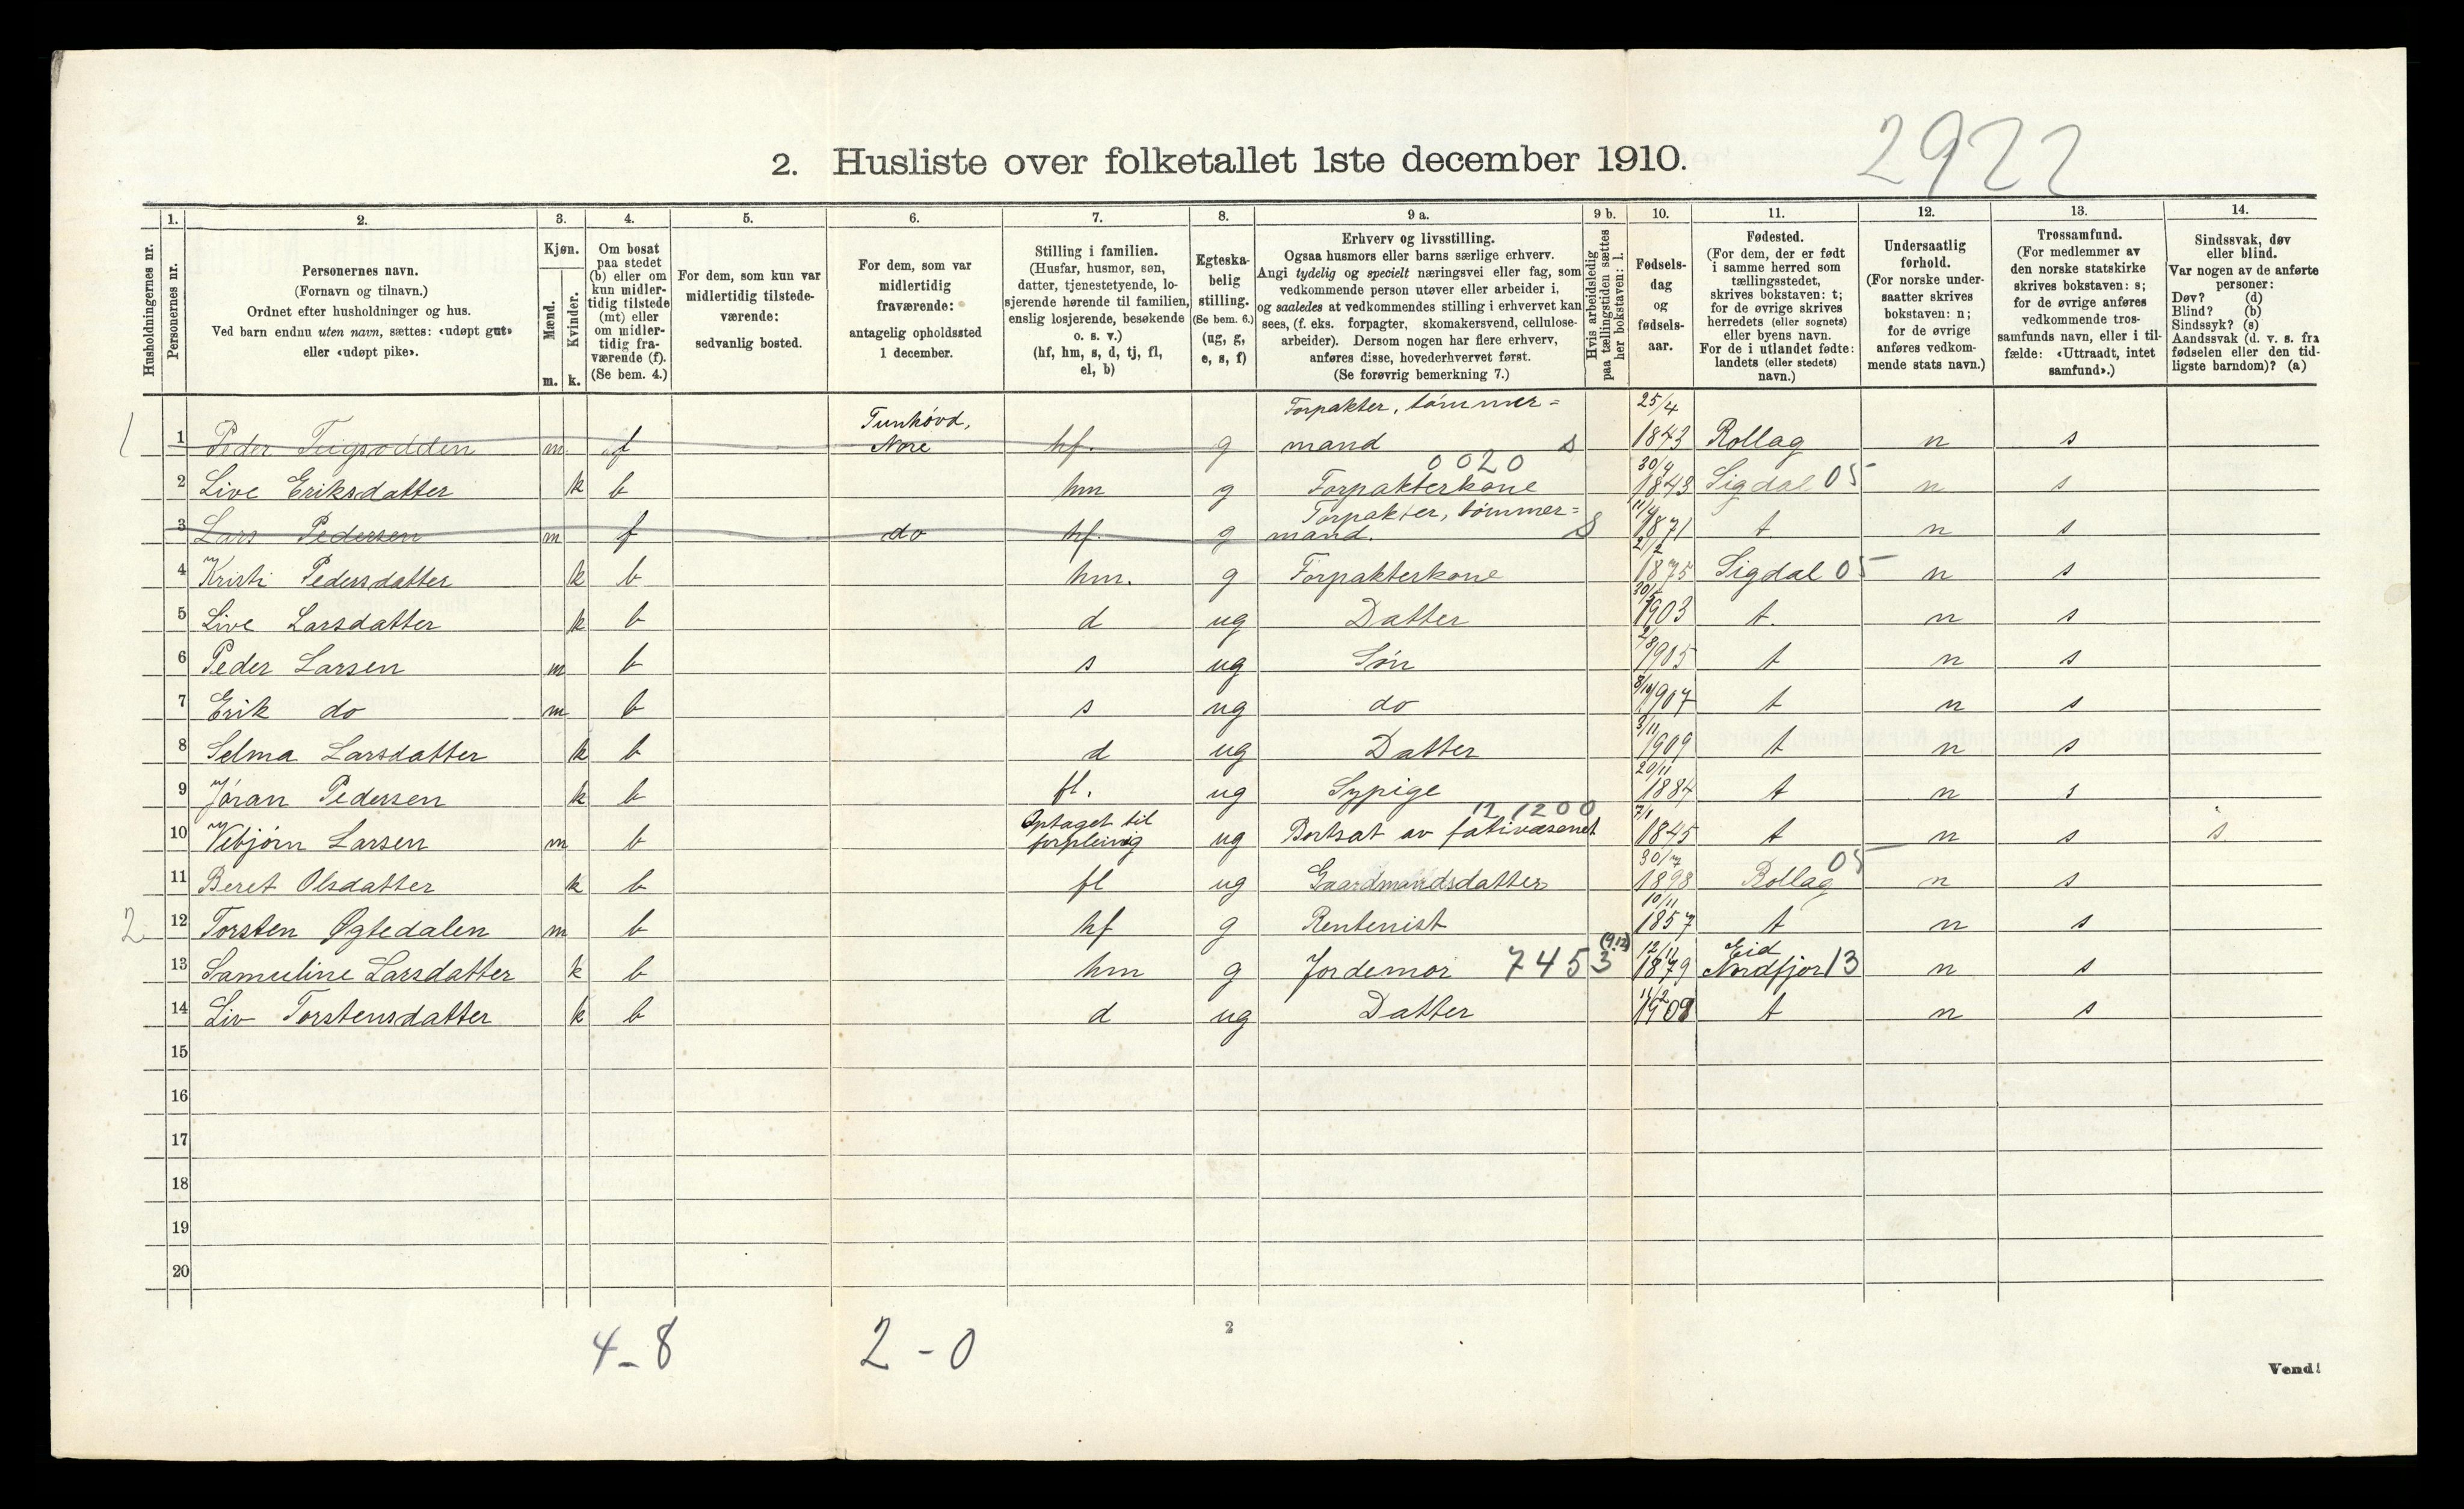 2922
2. Husliste over folketallet 1ste december 1910.
1. 2. 3. 4. 5. 6. 7. 8. 9 a. 9 b. 10. 11. 12. 13. 14.
Husholdningernes nr.
Personernes nr.
Personernes navn.
(Fornavn og tilnavn.)
Ordnet efter husholdninger og hus.
Ved barn endnu uten navn, sættes: «udøpt gut»
eller «udøpt pike».
Kjøn.
Mænd.
Kvinder.
m. k.
Om bosat
paa stedet
(b) eller om
kun midler-
tidig tilstede
(mt) eller
om midler-
tidig fra-
værende (f).
(Se bem. 4.)
For dem, som kun var
midlertidig tilstede-
værende:
sedvanlig bosted.
For dem, som var
midlertidig
fraværende:
antagelig opholdssted
1 december.
Stilling i familien.
(Husfar, husmor, søn,
datter, tjenestetyende, lo-
sjerende hørende til familien,
enslig losjerende, besøkende
o. s. v.)
(hf, hm, s, d, tj, fl,
el, b)
Egteska-
belig
stilling.
(Se bem. 6.)
(ug, g,
e, s, f)
Erhverv og livsstilling.
Ogsaa husmors eller barns særlige erhverv.
Angi tydelig og specielt næringsvei eller fag, som
vedkommende person utøver eller arbeider i,
og saaledes at vedkommendes stilling i erhvervet kan
sees, (f. eks. forpagter, skomakersvend, cellulose-
arbeider). Dersom nogen har flere erhverv,
anføres disse, hovederhvervet først.
(Se forøvrig bemerkning 7.)
Hvis arbeidsledig
paa tællingstiden sættes
her bokstaven: l.
Fødsels-
dag
og
fødsels-
aar.
Fødested.
(For dem, der er født
i samme herred som
tællingsstedet,
skrives bokstaven: t;
for de øvrige skrives
herredets (eller sognets)
eller byens navn.
For de i utlandet fødte:
landets (eller stedets)
navn.)
Undersaatlig
forhold.
(For norske under-
saatter skrives
bokstaven: n;
for de øvrige
anføres vedkom-
mende stats navn.)
Trossamfund.
(For medlemmer av
den norske statskirke
skrives bokstaven: s;
for de øvrige anføres
vedkommende tros-
samfunds navn, eller i til-
fælde: «Uttraadt, intet
samfund».)
Sindssvak, døv
eller blind.
Var nogen av de anførte
personer:
Døv? (d)
Blind? (b)
Sindssyk? (s)
Aandssvak (d. v. s. fra
fødselen eller den tid-
ligste barndom)? (a)
Tunhövd, Forpakter, tömmer= 25/4
1 1 Peder Teigsodden m f Nore hf. g mand s 1843 Rollag n s
0020 30/9
2 Live Eriksdatter k b hm g Forpakterkone 1843 Sigdal 05 n s
Forpakter, tömmer= 11/4
3 Lars Pedersen m f do hf. g mand. s 1871 t n s
2/2
4 Kristi Pedersdatter k b hm. g Forpakterkone 1875 Sigdal 05 n s
30/5
5 Live Larsdatter k b d ug Datter 1903 t. n s
2/8
6 Peder Larsen m b s ug Sön 1905 t n s
8/10
7 Erik do m b s ug do 1907 t n s
3/11
8 Selma Larsdatter k b d ug Datter 1909 t n s
20/11
9 Jöran Pedersen k b fl. ug Sypige 1884 t n s
Optaget til 12 1200 7/1
10 Vebjörn Larsen m b forpleinig ug Bortsat av fativæsenet 1845 t n s s
30/7 05
11 Beret Olsdatter k b fl ug Gaardmandsdatter 1898 Rollag n s
10/11
2 12 Torsten Øgtedalen m b hf g Rentenist 1857 t n s
(9.12) 12/11 Eid
13 Samueline Larsdatter k b hm g Jordemor 7453 1879 Nordfjor 13 n s
11/2
14 Liv Torstensdatter k b d ug Datter 1908 t n s
15
16
17
18
19
20
4-8 2-0
2
Vend!